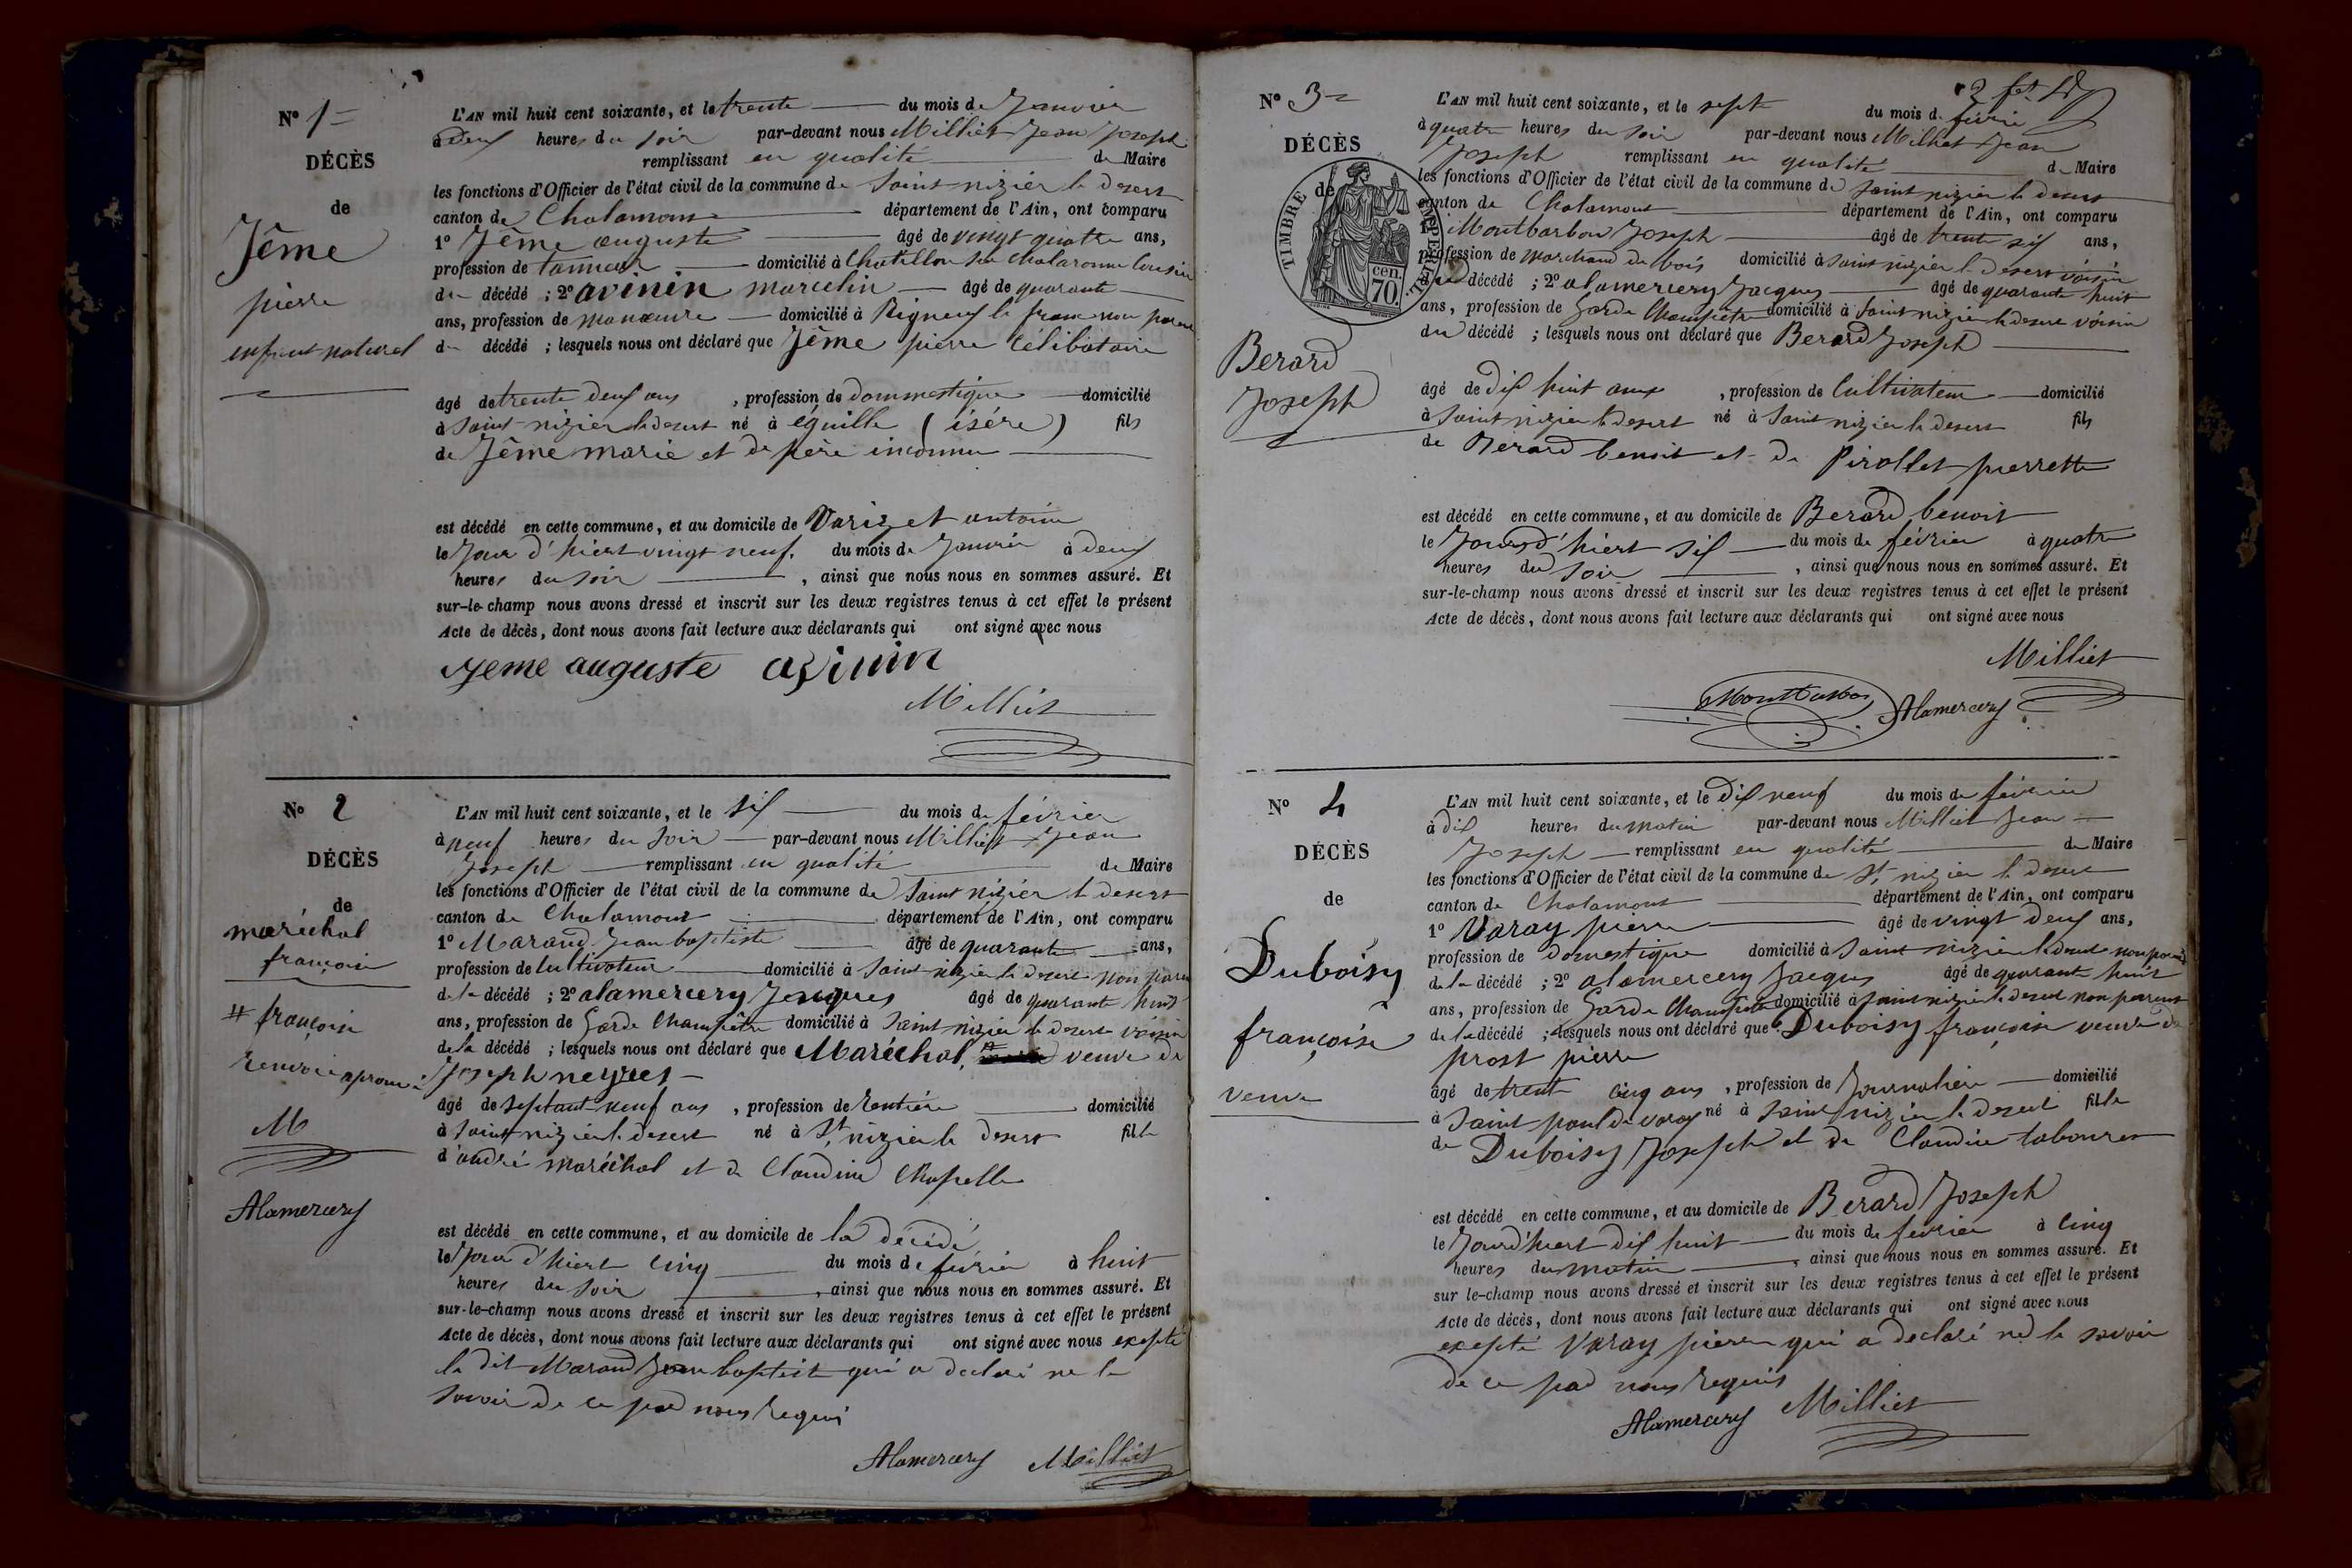 N° 1
DÉCÈS
de
Jême
pierre
enfant naturel
L'AN mil huit cent soixante, et le trente du mois de Janvier
à Deux heures du soir par-devant nous Milliet Jean Joseph
remplissant en qualité de Maire
les fonctions d'Officier de l'état civil de la commune de Saint nizier le desert
canton de Chalamont département de l'Ain, ont comparu
1° Jême auguste âgé de vingt quatre ans,
profession de tanneur domicilié à Chatillon sur Chalaronne Cousin
du décédé ; 2° avinin marcelin âgé de quarante
ans, profession de manœuvre domicilié à Rigneux le franc non parent
du décédé ; lesquels nous ont déclaré que Jême pierre Célibataire
âgé de trente deux ans , profession de dommestique domicilié
à Saint-nizier le desert né à éguille (isére) fils
de Jême marie et de père inconnu
est décédé en cette commune, et au domicile de Variget antoine
le Jour d'hiert vingt neuf. du mois de Janvier à deux
heures du soir , ainsi que nous nous en sommes assuré. Et
sur-le-champ nous avons dressé et inscrit sur les deux registres tenus à cet effet le présent
Acte de décès, dont nous avons fait lecture aux déclarants qui ont signé avec nous
Jeme auguste avinin
Milliet
N° 2
DÉCÈS
de
maréchal
françoise
# françoise
renvoi aprouvé
M
Alamercery
L'AN mil huit cent soixante, et le six du mois de février
à neuf heures du soir par-devant nous Milliet Jean
Joseph remplissant en qualité de Maire
les fonctions d'Officier de l'état civil de la commune de Saint nizier le desert
canton de Chalamont département de l'Ain, ont comparu
1° Marand Jean baptiste âgé de quarante ans,
profession de Cultivateur domicilié à Saint nizier le desert non parent
de la décédé ; 2° alamercery Jacques âgé de quarante huit
ans, profession de Garde Champêtre domicilié à Saint nizier le desert voisin
de la décédé ; lesquels nous ont déclaré que Maréchal, # veuve de
Joseph neyret
âgé de septant-neuf ans , profession de rentière domicilié
à Saint nizier le desert né à St nizier le desert fille
d'andré maréchal et de Claudine Chapelle
est décédé en cette commune, et au domicile de la décédé
le Jour d'hiert cinq du mois de février à huit
heures du soir , ainsi que nous nous en sommes assuré. Et
sur-le-champ nous avons dressé et inscrit sur les deux registres tenus à cet effet le présent
Acte de décès, dont nous avons fait lecture aux déclarants qui ont signé avec nous excepté
le dit Marand Jean baptiste qui a déclaré ne le
savoir de ce par nous requi
Alamercery Milliet
N° 3
DÉCÈS
de
TIMBRE IMPERIAL
70 cen.
Berard
Joseph
L'AN mil huit cent soixante, et le sept du mois de février
à quatre heures du soir par-devant nous Milliet Jean
Joseph remplissant en qualité de Maire
les fonctions d'Officier de l'état civil de la commune de Saint nizier le desert
canton de Chalamont département de l'Ain, ont comparu
1° Montbarbon Joseph âgé de trente six ans,
profession de marchand de bois domicilié à Saint nizier le desert voisin
du décédé ; 2° alamercery Jacques âgé de quarante huit
ans, profession de Garde Champêtre domicilié à Saint nizier le desert voisin
du décédé ; lesquels nous ont déclaré que Berard Joseph
âgé de dix huit ans , profession de Cultivateur domicilié
à Saint nizier le desert né à Saint nizier le desert fils
de Berard benoit et de Pirollet pierrette
est décédé en cette commune, et au domicile de Berard benoit
le Jourd'hiert six du mois de février à quatre
heures du soir , ainsi que nous nous en sommes assuré. Et
sur-le-champ nous avons dressé et inscrit sur les deux registres tenus à cet effet le présent
Acte de décès, dont nous avons fait lecture aux déclarants qui ont signé avec nous
Milliet
Montbarbon Alamercery
N° 4
DÉCÈS
de
Duboisy
françoise
veuve
L'AN mil huit cent soixante, et le dix neuf du mois de février
à dix heures du matin par-devant nous Milliet Jean
Joseph remplissant en qualité de Maire
les fonctions d'Officier de l'état civil de la commune de St nizier le desert
canton de Chalamont département de l'Ain, ont comparu
1° Varay pierre âgé de vingt deux ans,
profession de domestique domicilié à Saint nizier le desert non parent
de la décédé ; 2° alamercery Jacques âgé de quarante huit
ans, profession de Garde Champêtre domicilié à Saint nizier le desert non parent
de la décédé ; lesquels nous ont déclaré que Duboisy françoise veuve de
prost pierre
âgé de trente cinq ans , profession de Journalière domicilié
à Saint paul de varax né à Saint nizier le desert fille
de Duboisy Joseph et de Claudine tabouret
est décédé en cette commune, et au domicile de Berard Joseph
le Jourd'hiert dix huit du mois de février à cinq
heures du matin , ainsi que nous nous en sommes assuré. Et
sur le-champ nous avons dressé et inscrit sur les deux registres tenus à cet effet le présent
Acte de décès, dont nous avons fait lecture aux déclarants qui ont signé avec nous
excepté Varay pierre qui a declaré ne le savoir
de ce par nous requis
Alamercery Milliet